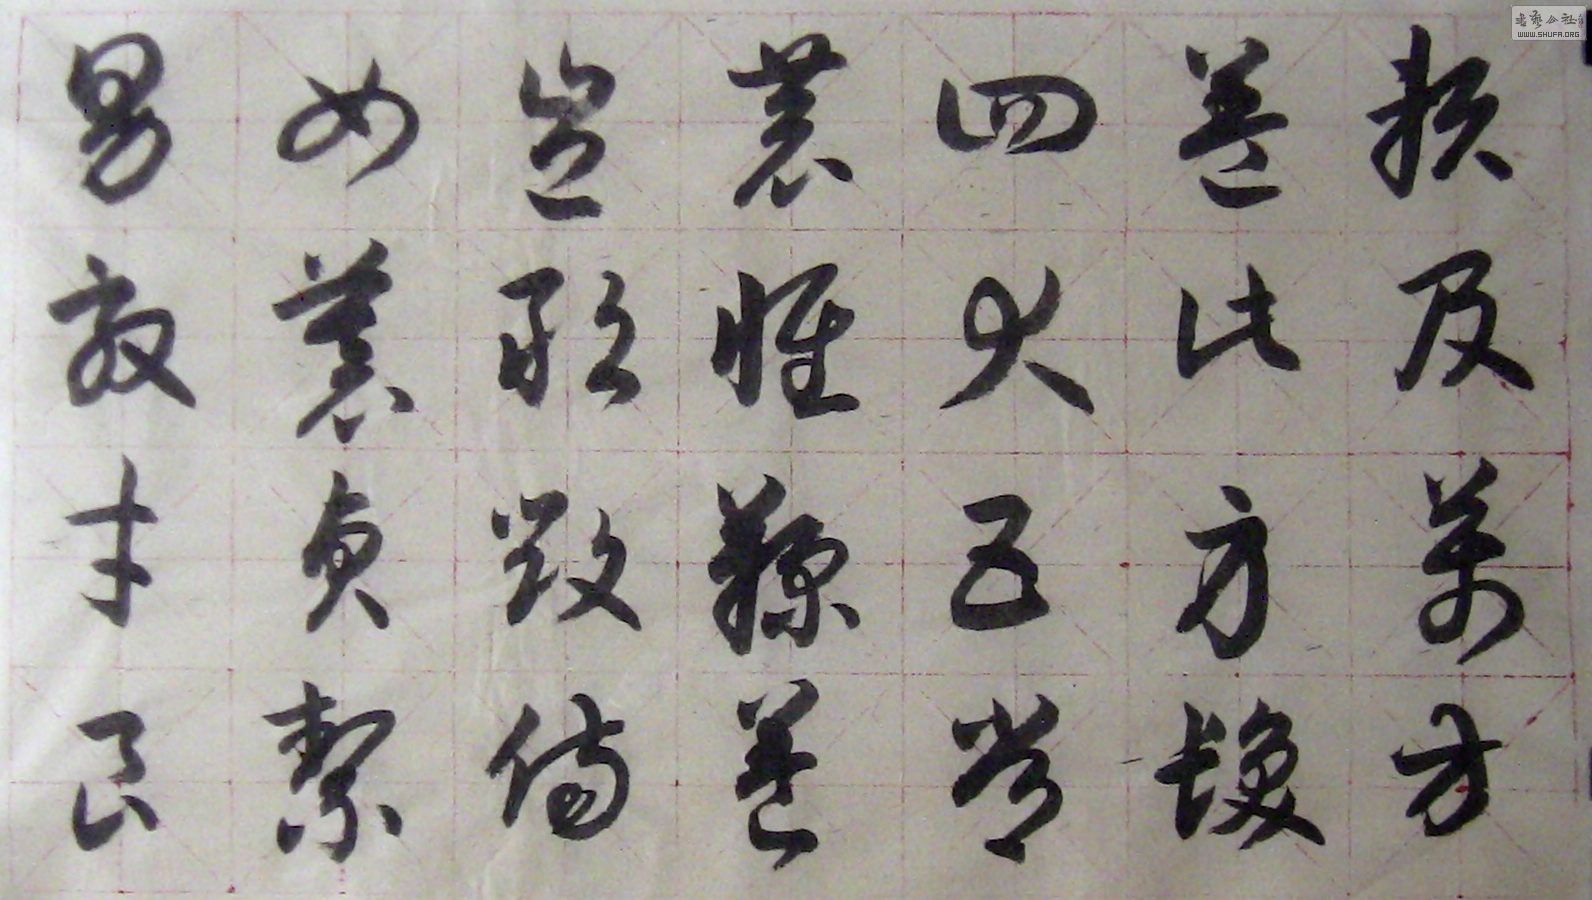 賴及萬方
盖此身髮
四大五常
恭惟鞠養
豈敢毀傷
女慕貞絜
男效才良
書藝公社
WWW.SHUFA.ORG